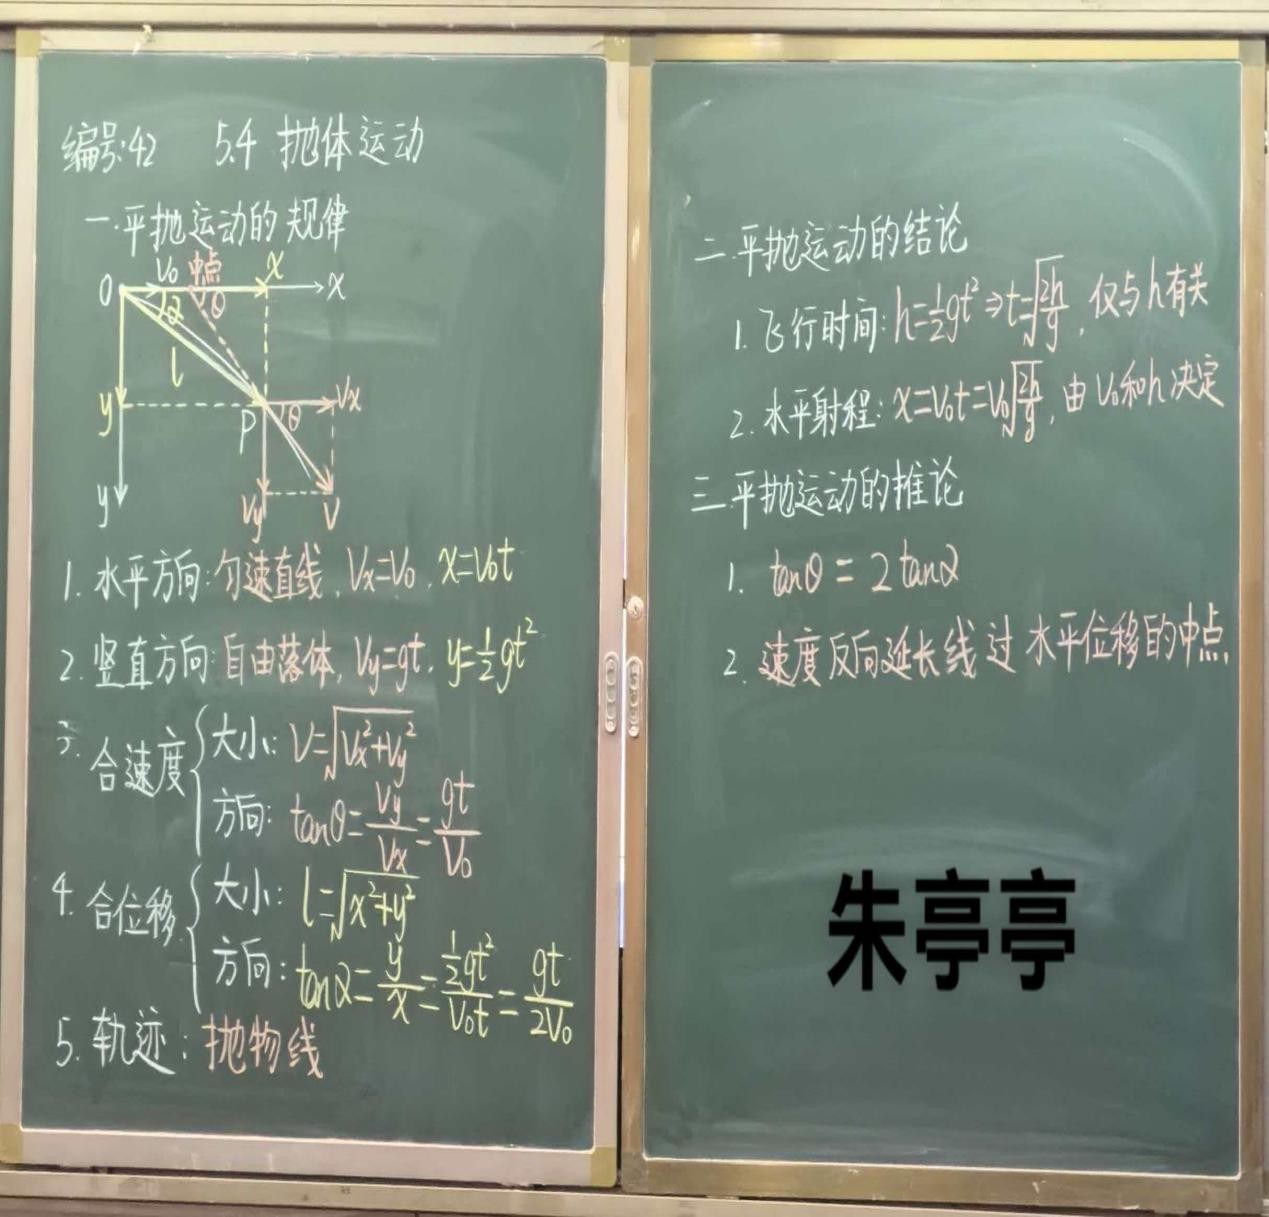 编号:42 5.4 抛体运动
一.平抛运动的规律
O V₀ 中点 x x
α θ
l
y P θ Vx
y Vy V
1. 水平方向:匀速直线, Vx=V₀, x=V₀t
2. 竖直方向:自由落体, Vy=gt, y=½gt²
3. 合速度 { 大小: V=√(Vx²+Vy²)
方向: tanθ=Vy/Vx=gt/V₀
4. 合位移 { 大小: l=√(x²+y²)
方向: tanα=y/x=½gt²/V₀t=gt/2V₀
5. 轨迹: 抛物线
二.平抛运动的结论
1. 飞行时间: h=½gt²⇒t=√(2h/g), 仅与h有关
2. 水平射程: x=V₀t=V₀√(2h/g), 由V₀和h决定
三.平抛运动的推论
1. tanθ=2tanα
2. 速度反向延长线过水平位移的中点.
朱亭亭